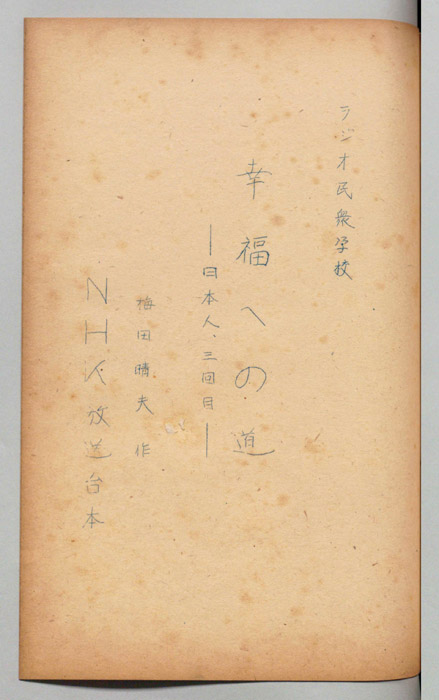 ラジオ民衆学校
幸福への道
―日本人、三回目―
梅田晴夫 作
NHK放送台本